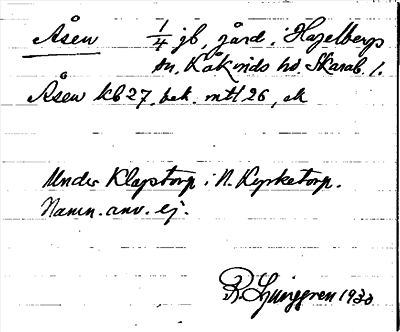 Åsen 1/4 jb, gård, i Hagelbergs
sn, Kåkinds hd. Skarab. l.
Åsen kb 27, bek. mtl 26, ek
Under Klapstorp i N. Kyrketorp.
Namn. anv. ej.
R. Ljunggren 1930